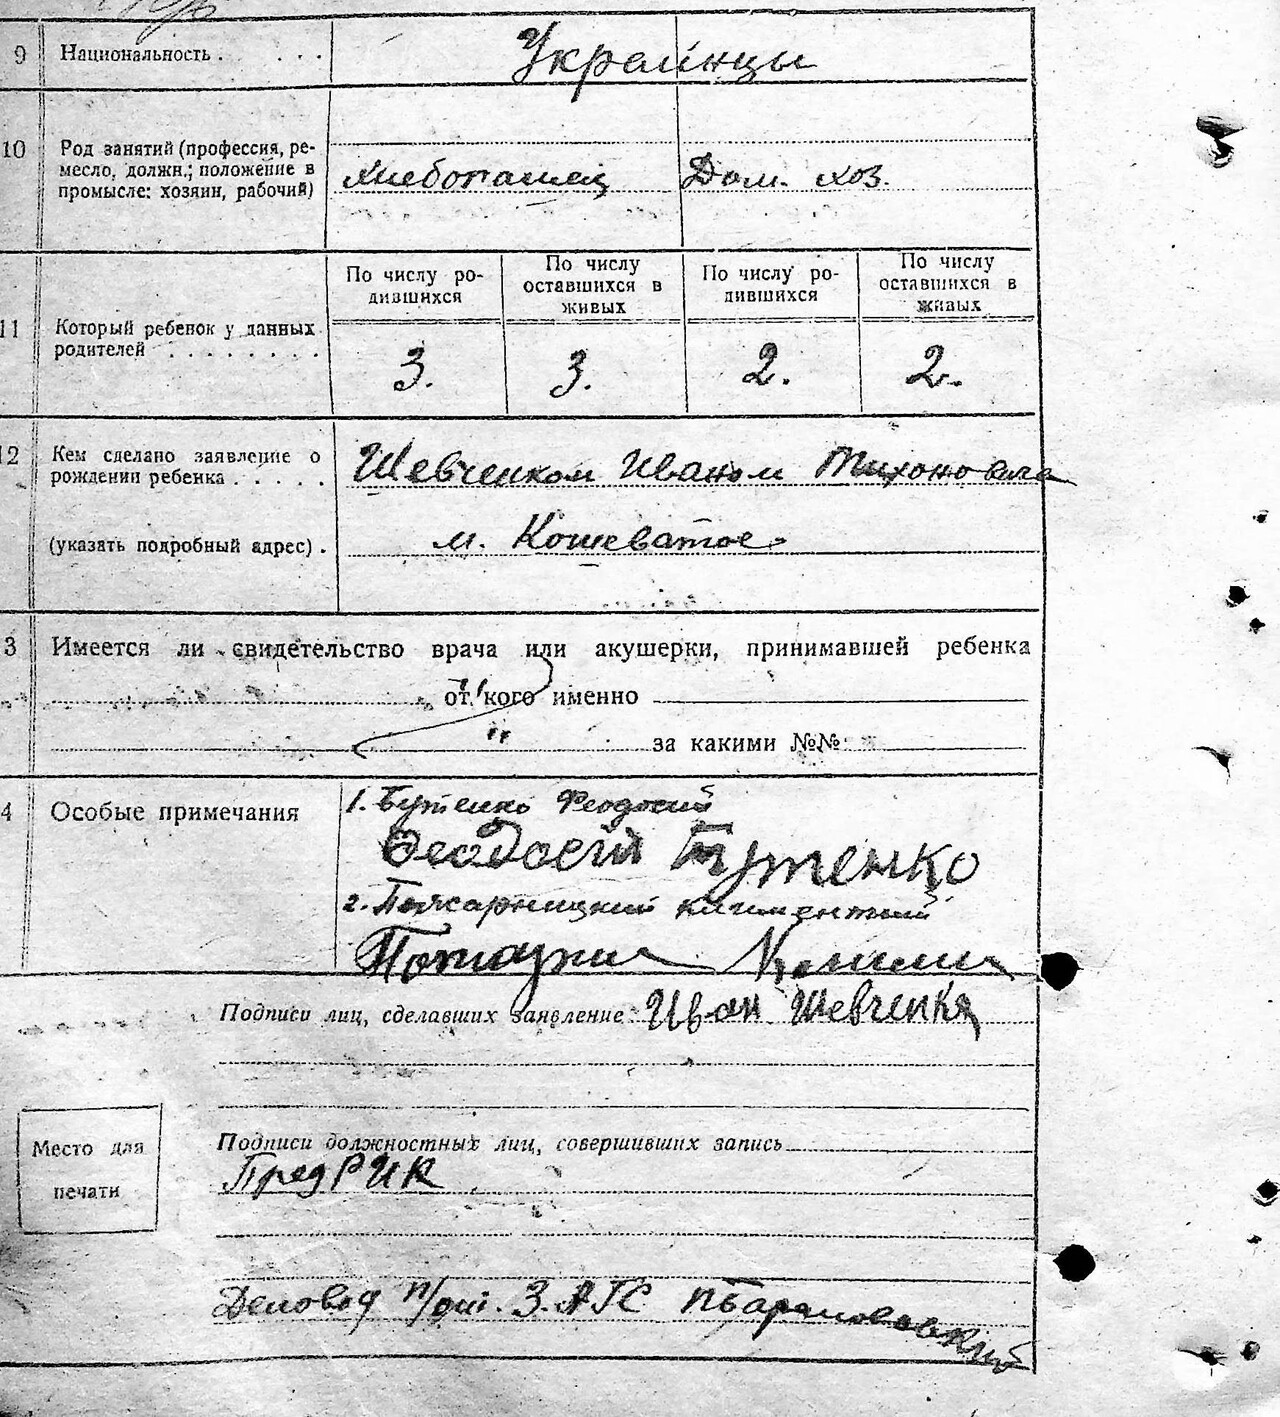 9 Национальность . . . . Украинцы
10 Род занятий (профессия, ре-
месло, должн.; положение в
промысле: хозяин, рабочий)
Хлебопашец Дом. хоз.
По числу ро-
дившихся
По числу
оставшихся в
живых
По числу ро-
дившихся
По числу
оставшихся в
живых
11 Который ребенок у данных
родителей . . . . . . . .
3. 3. 2. 2.
12 Кем сделано заявление о
рождении ребенка . . . . .
Шевченком Иваном Тихоновича
(указать подробный адрес) .
м. Кошеватое
3 Имеется ли свидетельство врача или акушерки, принимавшей ребенка
от кого именно
" за какими №№
4 Особые примечания
1. Бутенко Феодосий
Феодосій Бутенко
2. Пожарницкий
Подписи лиц, сделавших заявление Иван Шевченко
Место для
печати
Подписи должностных лиц, совершивших запись
ПредРИК
Деловод п/от. З.АГС Барановский